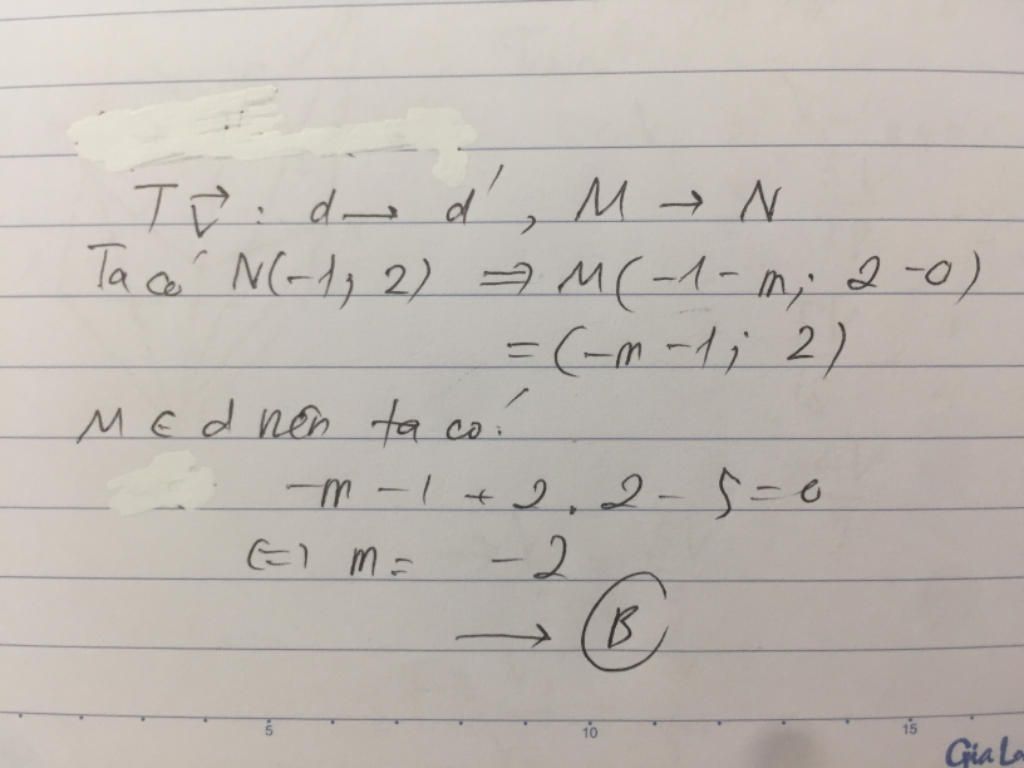 T v⃗ : d → d′ , M → N
Ta có N(-1; 2) ⇒ M(-1-m; 2-0)
= (-m-1; 2)
M ∈ d nên ta có:
-m - 1 + 2 . 2 - 5 = 0
⇔ m = -2
→ B
5 10 15
Gia La